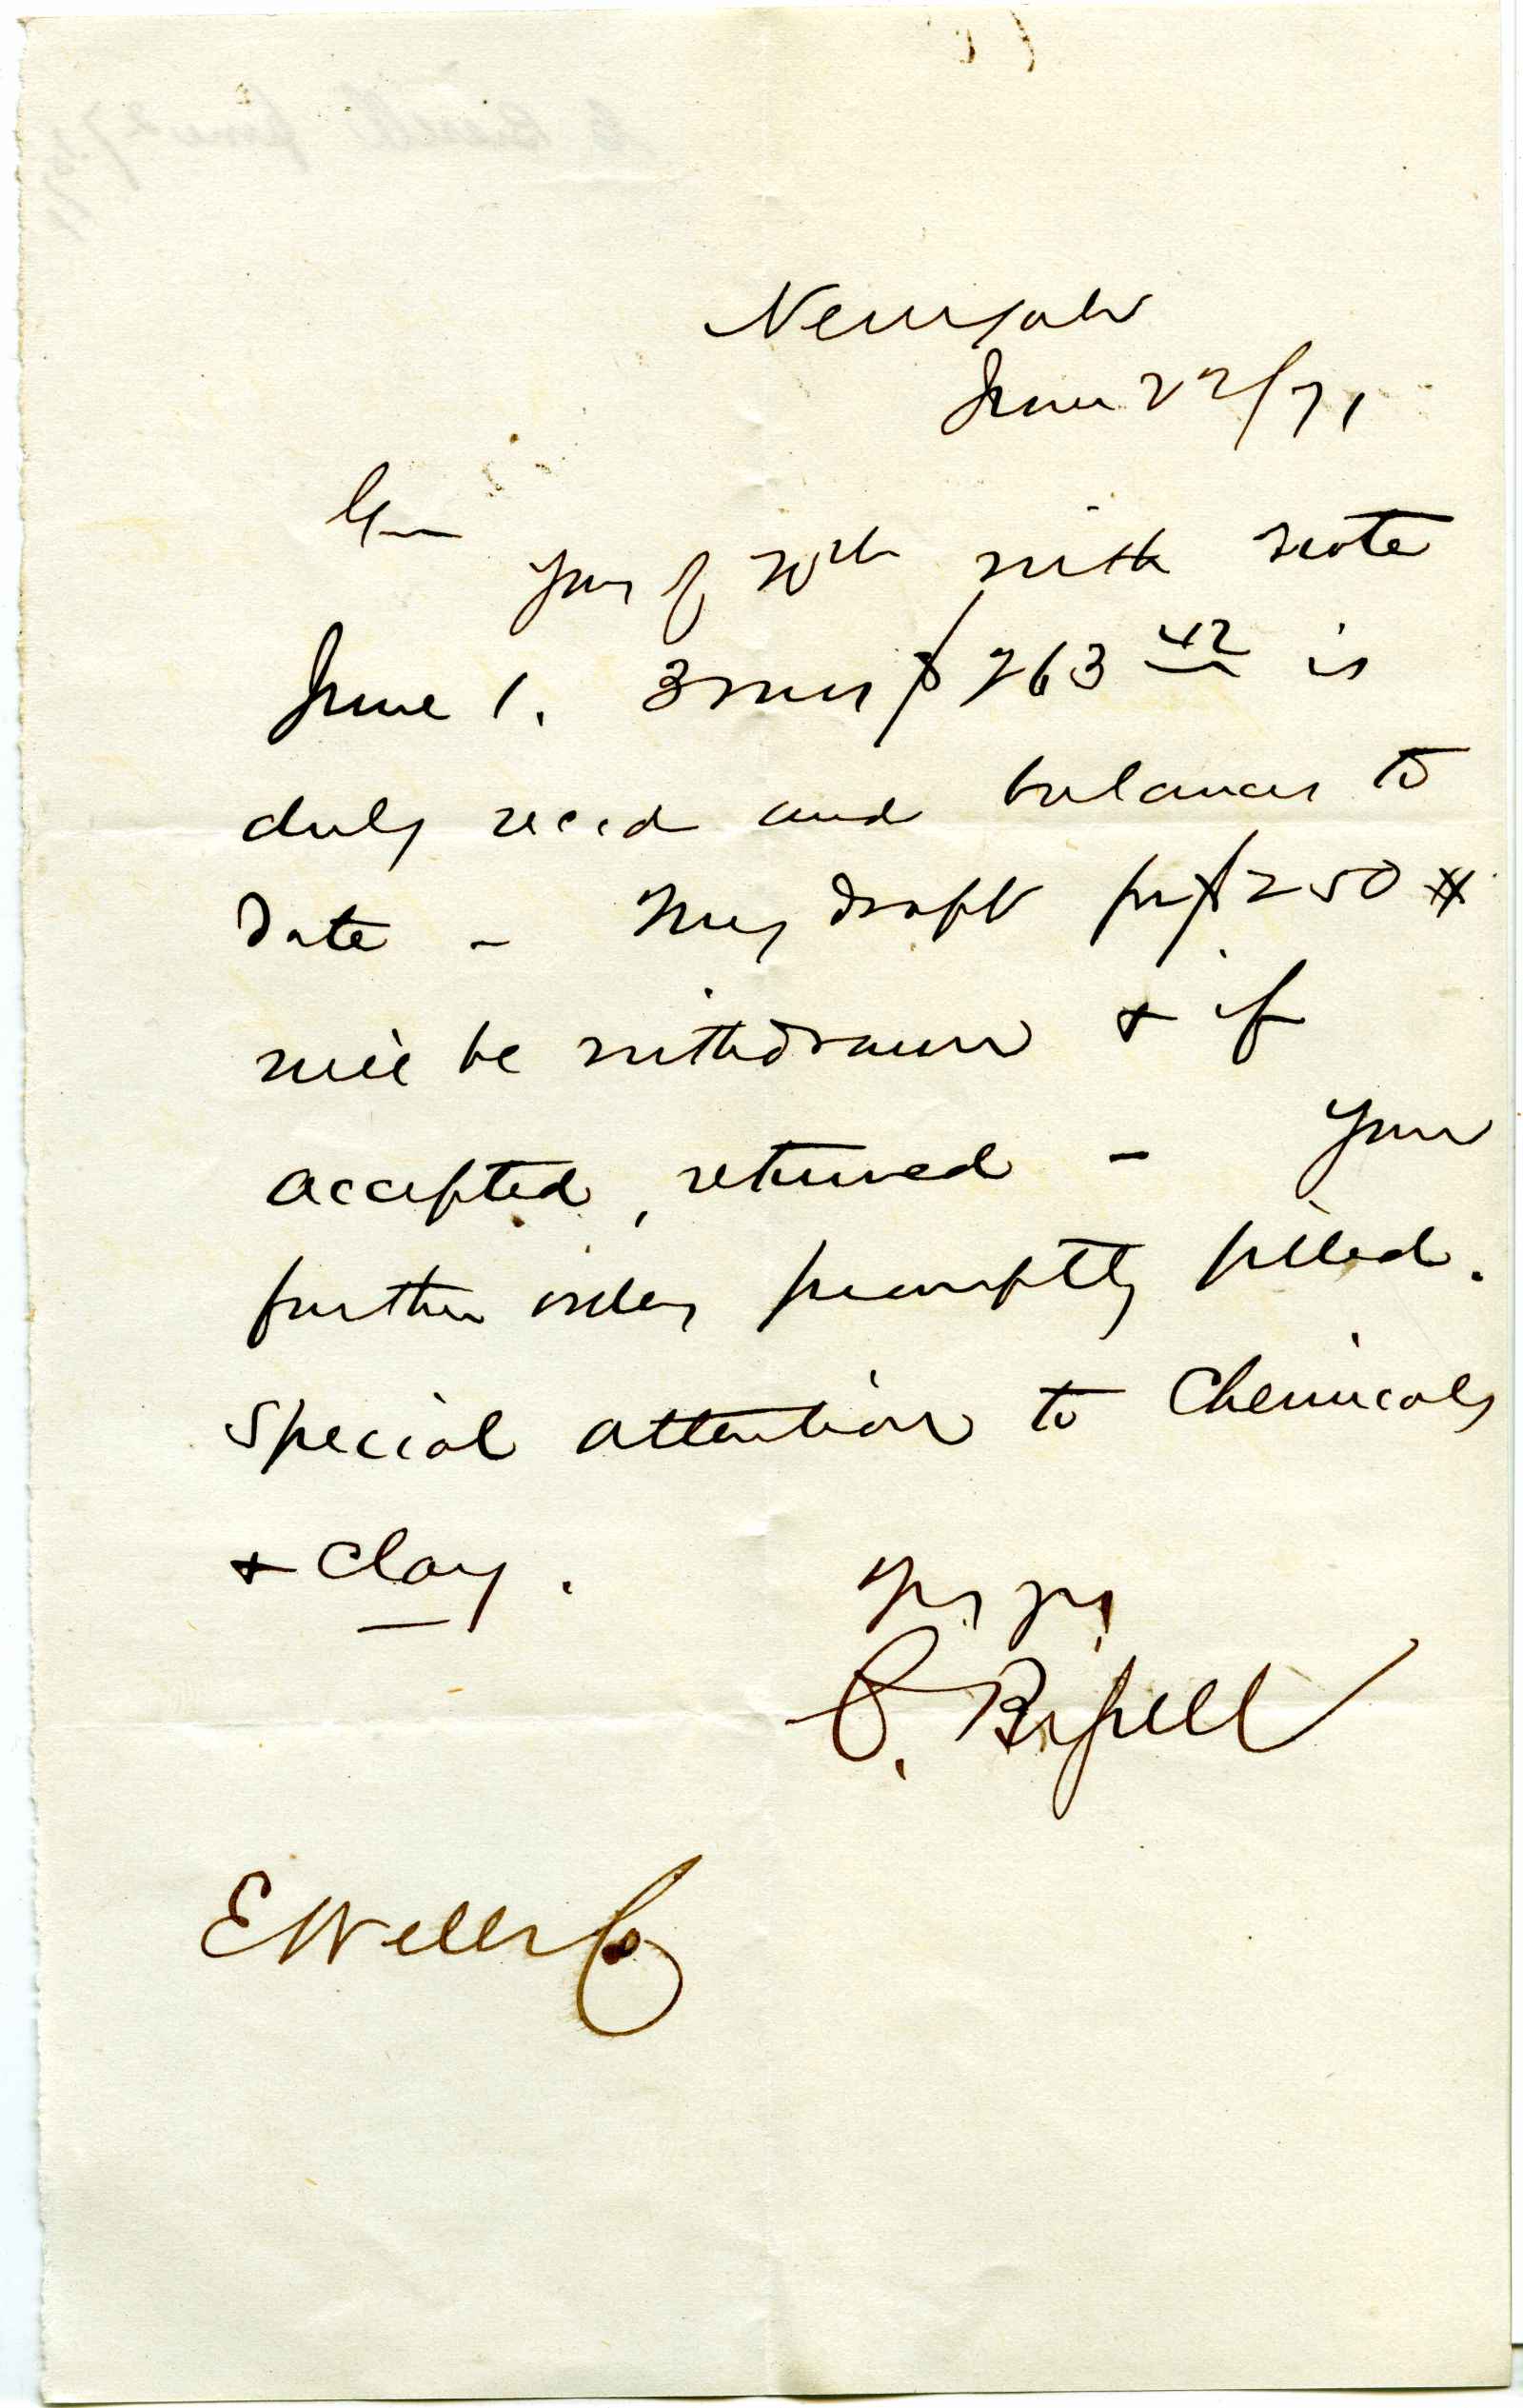 New York
June 27/71
Gen
Your of 20th with note
June 1. 3 mos $ 263 42 is
duly recd and balances to
Date - My draft for $250 #
will be withdrawn & if
accepted, returned - Your
further orders promptly filled.
Special attention to Chemicals
& Clay.
Yrs
C. Bissell
E Wells Co